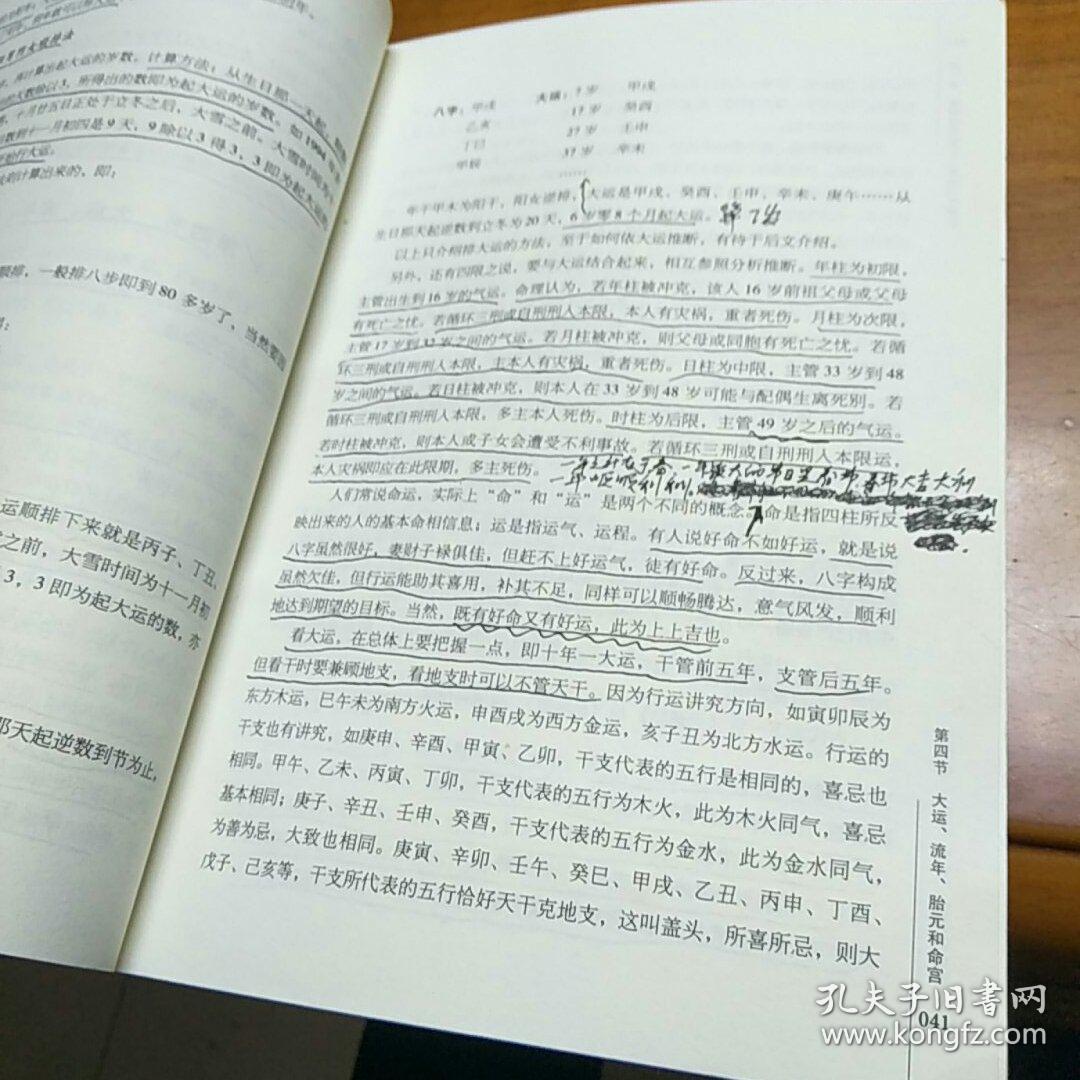 再计算出起大运的岁数，计算方法：从生日那一天起
天数除以3，所得出的数即为起大运的岁数。如1994年
十月廿五日正处于立冬之后，大雪之前。大雪时间为
数到十一月初四是9天，9除以3得3，3即为起大运的
计算出来的，即：
一般排八步即到80多岁了，当然要
运顺排下来就是丙子、丁丑、
之前，大雪时间为十一月初
3，3即为起大运的数，亦
那天起逆数到节为止，
八字：甲戌 大运：7岁 甲戌
乙亥 17岁 癸酉
丁巳 27岁 壬申
甲辰 37岁 辛未
……
年干甲木为阳干，阳女逆排，大运是甲戌、癸酉、壬申、辛未、庚午……从
生日那天起逆数到立冬为20天，6岁零8个月起大运。
以上只介绍排大运的方法，至于如何依大运推断，有待于后文介绍。
另外，还有四限之说，要与大运结合起来，相互参照分析推断。年柱为初限，
主管出生到16岁的气运。命理认为，若年柱被冲克，该人16岁前祖父母或父母
有死亡之忧。若循环三刑或自刑刑人本限，本人有灾祸，重者死伤。月柱为次限，
主管17岁到32岁之间的气运。若月柱被冲克，则父母或同胞有死亡之忧。若循
环三刑或自刑刑人本限，主本人有灾祸，重者死伤。日柱为中限，主管33岁到48
岁之间的气运。若日柱被冲克，则本人在33岁到48岁可能与配偶生离死别。若
循环三刑或自刑刑人本限，多主本人死伤。时柱为后限，主管49岁之后的气运。
若时柱被冲克，则本人或子女会遭受不利事故。若循环三刑或自刑刑人本限运，
本人灾祸即应在此限期，多主死伤。
人们常说命运，实际上“命”和“运”是两个不同的概念：命是指四柱所反
映出来的人的基本命相信息；运是指运气、运程。有人说好命不如好运，就是说
八字虽然很好，妻财子禄俱佳，但赶不上好运气，徒有好命。反过来，八字构成
虽然欠佳，但行运能助其喜用，补其不足，同样可以顺畅腾达，意气风发，顺利
地达到期望的目标。当然，既有好命又有好运，此为上上吉也。
看大运，在总体上要把握一点，即十年一大运，干管前五年，支管后五年。
但看干时要兼顾地支，看地支时可以不管天干。因为行运讲究方向，如寅卯辰为
东方木运，巳午未为南方火运，申酉戌为西方金运，亥子丑为北方水运。行运的
干支也有讲究，如庚申、辛酉、甲寅、乙卯，干支代表的五行是相同的，喜忌也
相同。甲午、乙未、丙寅、丁卯，干支代表的五行为木火，此为木火同气，喜忌
基本相同；庚子、辛丑、壬申、癸酉，干支代表的五行为金水，此为金水同气，
为善为忌，大致也相同。庚寅、辛卯、壬午、癸巳、甲戌、乙丑、丙申、丁酉、
戊子、己亥等，干支所代表的五行恰好天干克地支，这叫盖头，所喜所忌，则大
第四节 大运、流年、胎元和命宫
041
孔夫子旧书网
www.kongfz.com